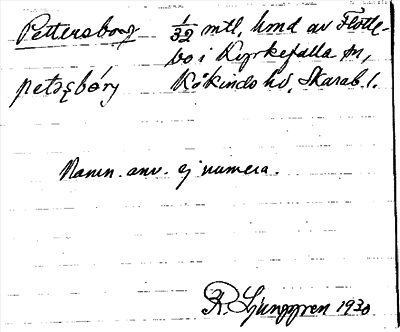 Pettersborg 1/32 mtl, hmd av Flottebo i Kyrkefalla sn,
petʃebórj Kåkinds hd, Skarab. l.
Namn. anv. ej numera.
R. Ljunggren 1930